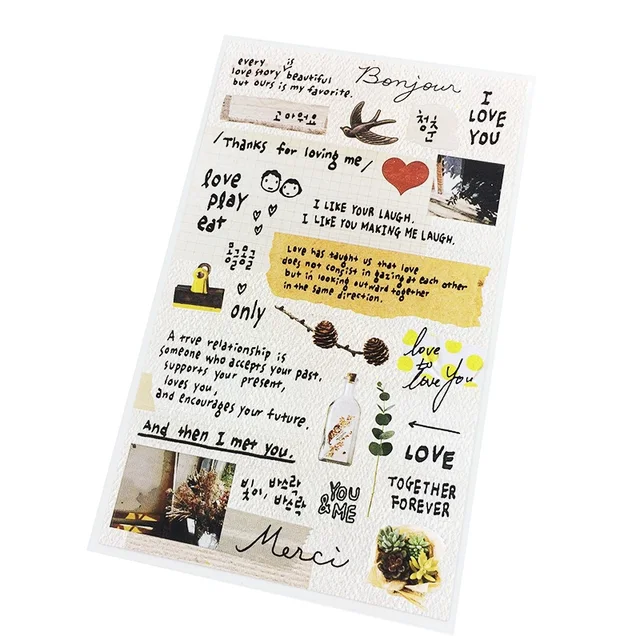 every is
love story beautiful
but ours is my favorite.
Bonjour
I
LOVE
YOU
고마워요
청
춘
/Thanks for loving me/
love
play
eat
I LIKE YOUR LAUGH.
I LIKE YOU MAKING ME LAUGH.
몽글
몽글
Love has taught us that love
does not consist in gazing at each other
but in looking outward together
in the same direction.
only
A true relationship is
someone who accepts your past,
supports your present,
loves you,
and encourages your future.
love
to
love you
And then I met you.
LOVE
TOGETHER
FOREVER
빛이, 바스락
바스락
YOU
& ME
Merci